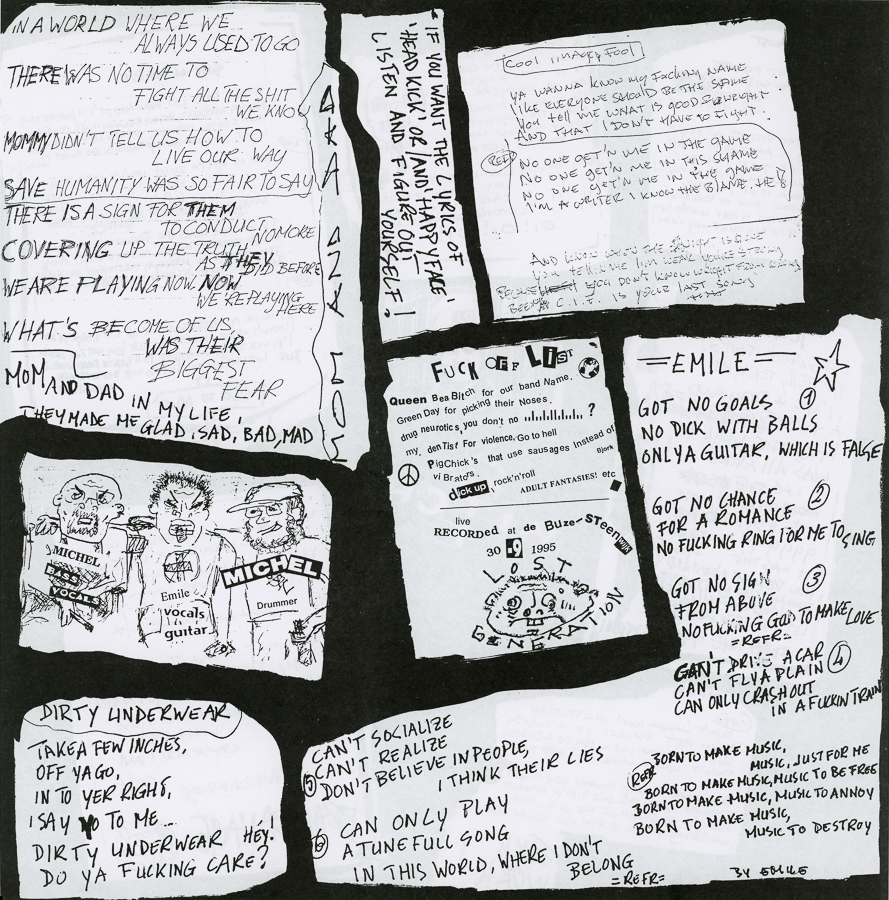 IN A WORLD WHERE WE
ALWAYS USED TO GO
THERE WAS NO TIME TO
FIGHT ALL THE SHIT
WE KNOW
MOMMY DIDN'T TELL US HOW TO
LIVE OUR WAY
SAVE HUMANITY WAS SO FAIR TO SAY
THERE IS A SIGN FOR THEM
TO CONDUCT NO MORE
COVERING UP THE TRUTH
AS THEY DID BEFORE
WE ARE PLAYING NOW. NOW
WE'RE PLAYING
HERE
WHAT'S BECOME OF US,
WAS THEIR
BIGGEST
FEAR
MOM AND DAD IN MY LIFE,
THEY MADE ME GLAD, SAD, BAD, MAD
MOM AND
"IF YOU WANT THE LYRICS OF
'HEAD KICK' OR/AND 'HAPPY FACE',
LISTEN AND FIGURE OUT
YOURSELF!
COOL IMAGE, FOOL
YA WANNA KNOW MY FUCKING NAME
LIKE EVERYONE SHOULD BE THE SAME
YOU TELL ME WHAT IS GOOD
AND THAT I DON'T HAVE TO FIGHT
REF
NO ONE GET'N ME IN THE GAME
NO ONE GET'N ME IN THIS SHAME
NO ONE GET'N ME IN THE GAME
I'M A WRITER I KNOW THE BLAME. HE
AND KNOW WHEN THE IS GONE
YOU TELL ME I'M WEAK YOU'RE STRONG
YOU DON'T KNOW RIGHT FROM WRONG
IS YOUR LAST SONG
FUCK OFF LIST
Queen Bea Bitch for our band Name.
Green Day for picking their Noses.
drug neurotics, you don't no ?
my, denTist For violence, Go to hell
PigChick's that use sausages Instead of
Bjork
vi Brators.
dick up rock'n'roll
ADULT FANTASIES! etc
live
RECORDED at de BUZerSTeen
30 -9 1995
LOST
GENERATION
=EMILE=
GOT NO GOALS 1
NO DICK WITH BALLS
ONLY A GUITAR, WHICH IS FALSE
GOT NO CHANCE 2
FOR A ROMANCE
NO FUCKING RING FOR ME TO SING
GOT NO SIGN 3
FROM ABOVE
NO FUCKING GOD TO MAKE LOVE
=REFR=
CAN'T DRIVE A CAR 4
CAN'T FLY A PLAIN
CAN ONLY CRASH OUT
IN A FUCKIN TRAIN
MICHEL
BASS
VOCALS
Emile
vocals
guitar
MICHEL
Drummer
DIRTY UNDERWEAR
TAKE A FEW INCHES,
OFF YA GO,
IN TO YER RIGHT,
I SAY YO TO ME...
DIRTY UNDERWEAR HEY!
DO YA FUCKING CARE?
CAN'T SOCIALIZE
5 CAN'T REALIZE
DON'T BELIEVE IN PEOPLE,
I THINK THEIR LIES
6 CAN ONLY PLAY
A TUNEFULL SONG
IN THIS WORLD, WHERE I DON'T
BELONG
=REFR=
REFR
BORN TO MAKE MUSIC,
MUSIC, JUST FOR ME
BORN TO MAKE MUSIC, MUSIC TO BE FREE
BORN TO MAKE MUSIC, MUSIC TO ANNOY
BORN TO MAKE MUSIC,
MUSIC TO DESTROY
BY EMILE